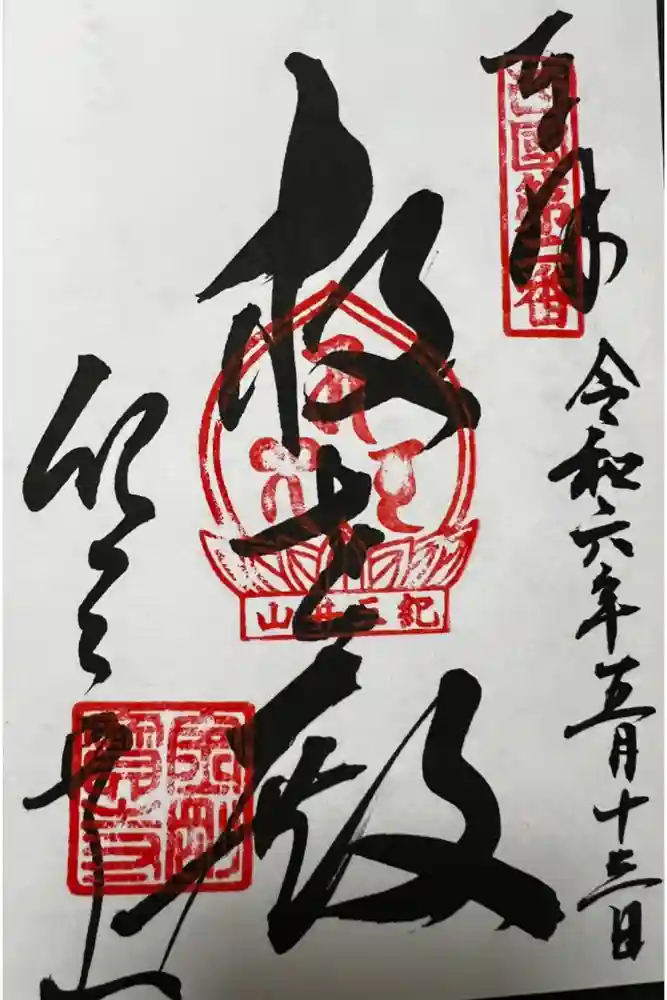 奉拝
西國第二番
令和六年五月十三日
救世殿
紀三井山
紀三井山
金剛寳寺